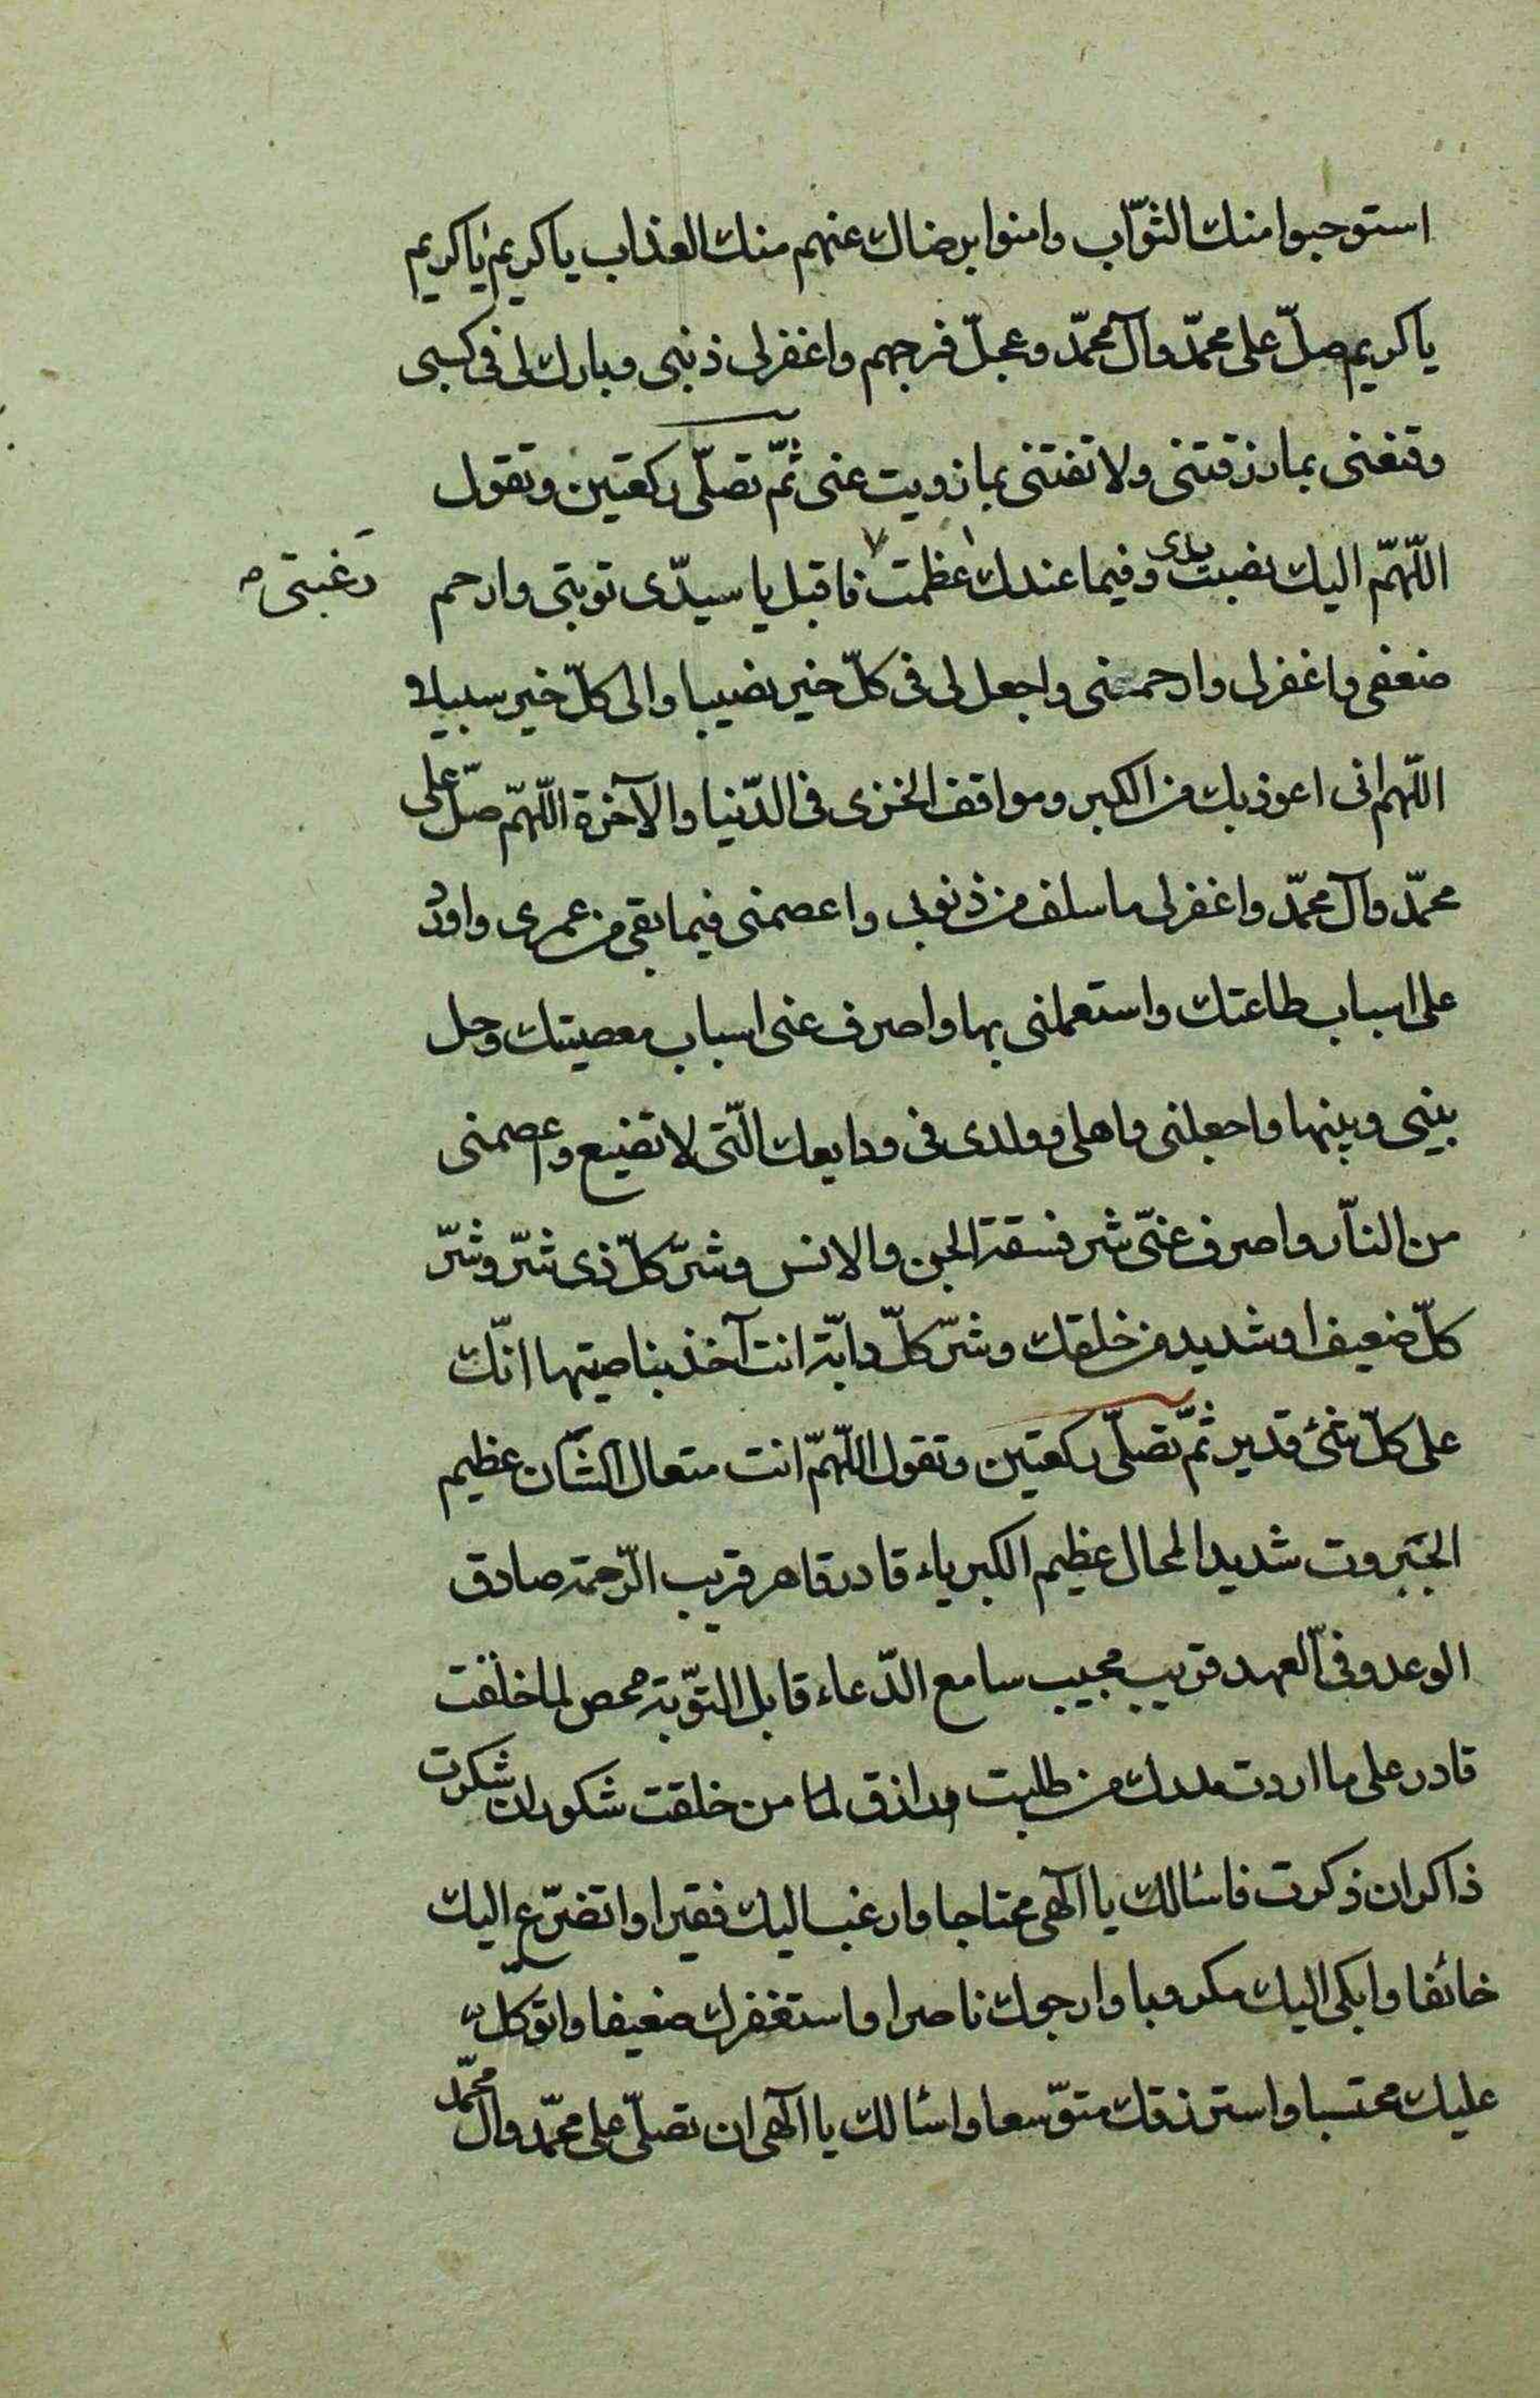 استوجبوا منك الثوّاب وامنوا برضاك عنهم منك العذاب ياكريم ياكريم
ياكريم صلّ على محمّد وآل محمّد وعجلّ فرجهم واغفرلى ذنبى وبارك لى فى كسبى
وقنعنى بما رزقتنى ولا تفتنى بما زويت عنى ثمّ تصلّى ركعتين وتقول
اللّهمّ اليك نصبت يدى وفيما عندك عظمت فاقبل يا سيدّى توبتى وارحم
رغبتى
ضعفى واغفرلى وارحمنى واجعل لى فى كلّ خير نصيبا والى كلّ خير سبيلا
اللّهم انى اعوذ بك من الكبر ومواقف الخزى فى الدّنيا والآخرة اللّهمّ صلّ على
محمّد وآل محمّد واغفرلى ما سلف من ذنوبى واعصمنى فيما بقى من عمرى واورد
على اسباب طاعتك واستعملنى بها واصرف عنى اسباب معصيتك وحل
بينى وبينها واجعلنى واهلى وولدى فى ودايعك الّتى لا تضيع واعصمنى
من النّار واصرف عنّى شر فسقة الجن والانس وشرّ كلّ ذى شرّ وشرّ
كلّ ضعيف او شديد من خلقك وشرّ كلّ دابّة انت آخذ بناصيتها انّك
على كلّ شئ قدير ثمّ تصلّى ركعتين وتقول اللّهمّ انت متعال الشّان عظيم
الجبروت شديد المحال عظيم الكبرياء قادر قاهر قريب الرّحمة صادق
الوعد وفىّ العهد قريب مجيب سامع الدّعاء قابل التوّبة محص لما خلقت
قادر على ما اردت مدرك من طلبت رازق لما من خلقت شكور ان شكرت
ذاكر ان ذكرت فاسئالك يا الٓهى محتاجا وارغب اليك فقيرا واتضرّع اليك
خائفا وابكى اليك مكروبا وارجوك ناصرا واستغفرك ضعيفا واتوكلّ
عليك محتسبا واسترزقك متوّسعا واسئالك يا الٓهى ان تصلّى على محمّد وآل محمّد